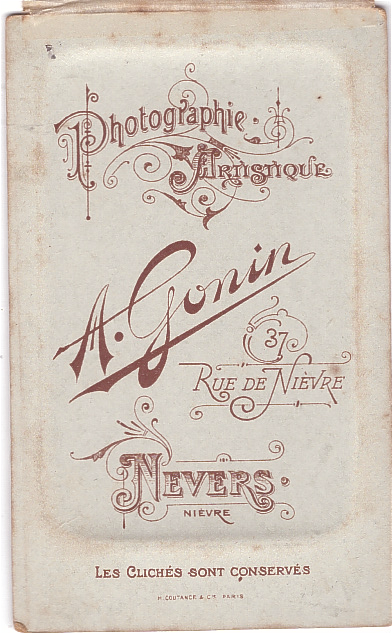 Photographie
Artistique
A. Gonin
37
Rue de Nièvre
Nevers.
Nièvre
Les Clichés sont conservés
H. Coutance & Cie Paris